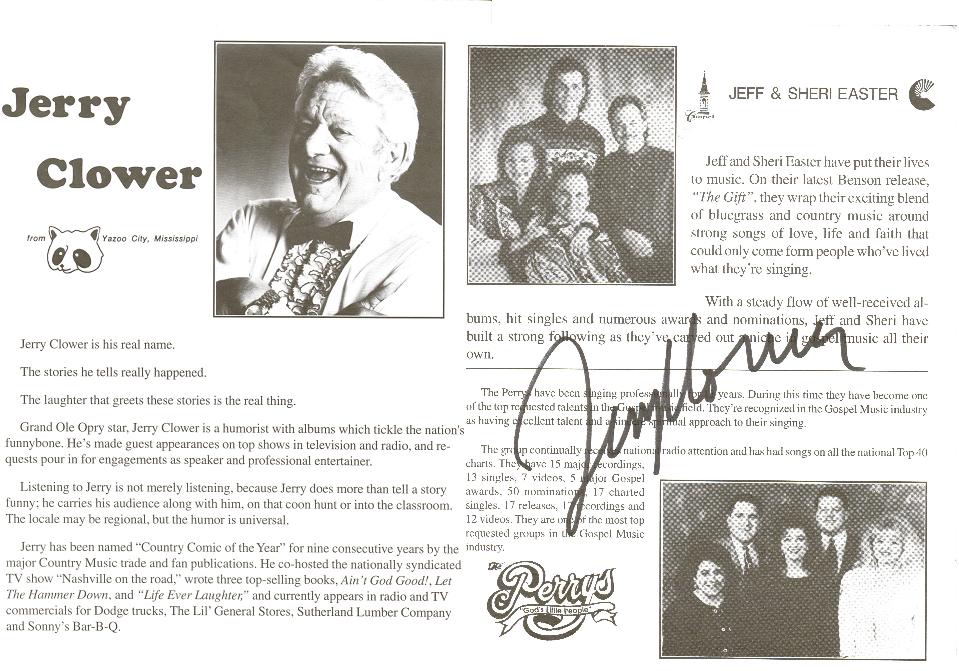 Jerry
Clower
from Yazoo City, Mississippi
Jerry Clower is his real name.
The stories he tells really happened.
The laughter that greets these stories is the real thing.
Grand Ole Opry star, Jerry Clower is a humorist with albums which tickle the nation's
funnybone. He's made guest appearances on top shows in television and radio, and re-
quests pour in for engagements as speaker and professional entertainer.
Listening to Jerry is not merely listening, because Jerry does more than tell a story
funny; he carries his audience along with him, on that coon hunt or into the classroom.
The locale may be regional, but the humor is universal.
Jerry has been named “Country Comic of the Year” for nine consecutive years by the
major Country Music trade and fan publications. He co-hosted the nationally syndicated
TV show “Nashville on the road,” wrote three top-selling books, Ain't God Good!, Let
The Hammer Down, and “Life Ever Laughter,” and currently appears in radio and TV
commercials for Dodge trucks, The Lil' General Stores, Sutherland Lumber Company
and Sonny's Bar-B-Q.
JEFF & SHERI EASTER
Jeff and Sheri Easter have put their lives
to music. On their latest Benson release,
“The Gift”, they wrap their exciting blend
of bluegrass and country music around
strong songs of love, life and faith that
could only come form people who've lived
what they're singing.
With a steady flow of well-received al-
bums, hit singles and numerous awards and nominations, Jeff and Sheri have
built a strong following as they've carved out a niche in gospel music all their
own.
Jerry Clower
The Perrys have been singing professionally for years. During this time they have become one
of the top requested talents in the Gospel field. They're recognized in the Gospel Music industry
as having excellent talent and a sincere spiritual approach to their singing.
The group continually receives national radio attention and has had songs on all the national Top 40
charts. They have 15 major recordings,
13 singles, 7 videos, 5 major Gospel
awards, 50 nominations, 17 charted
singles, 17 releases, recordings and
12 videos. They are one of the most top
requested groups in the Gospel Music
industry.
The
Perrys
"God's Little People"